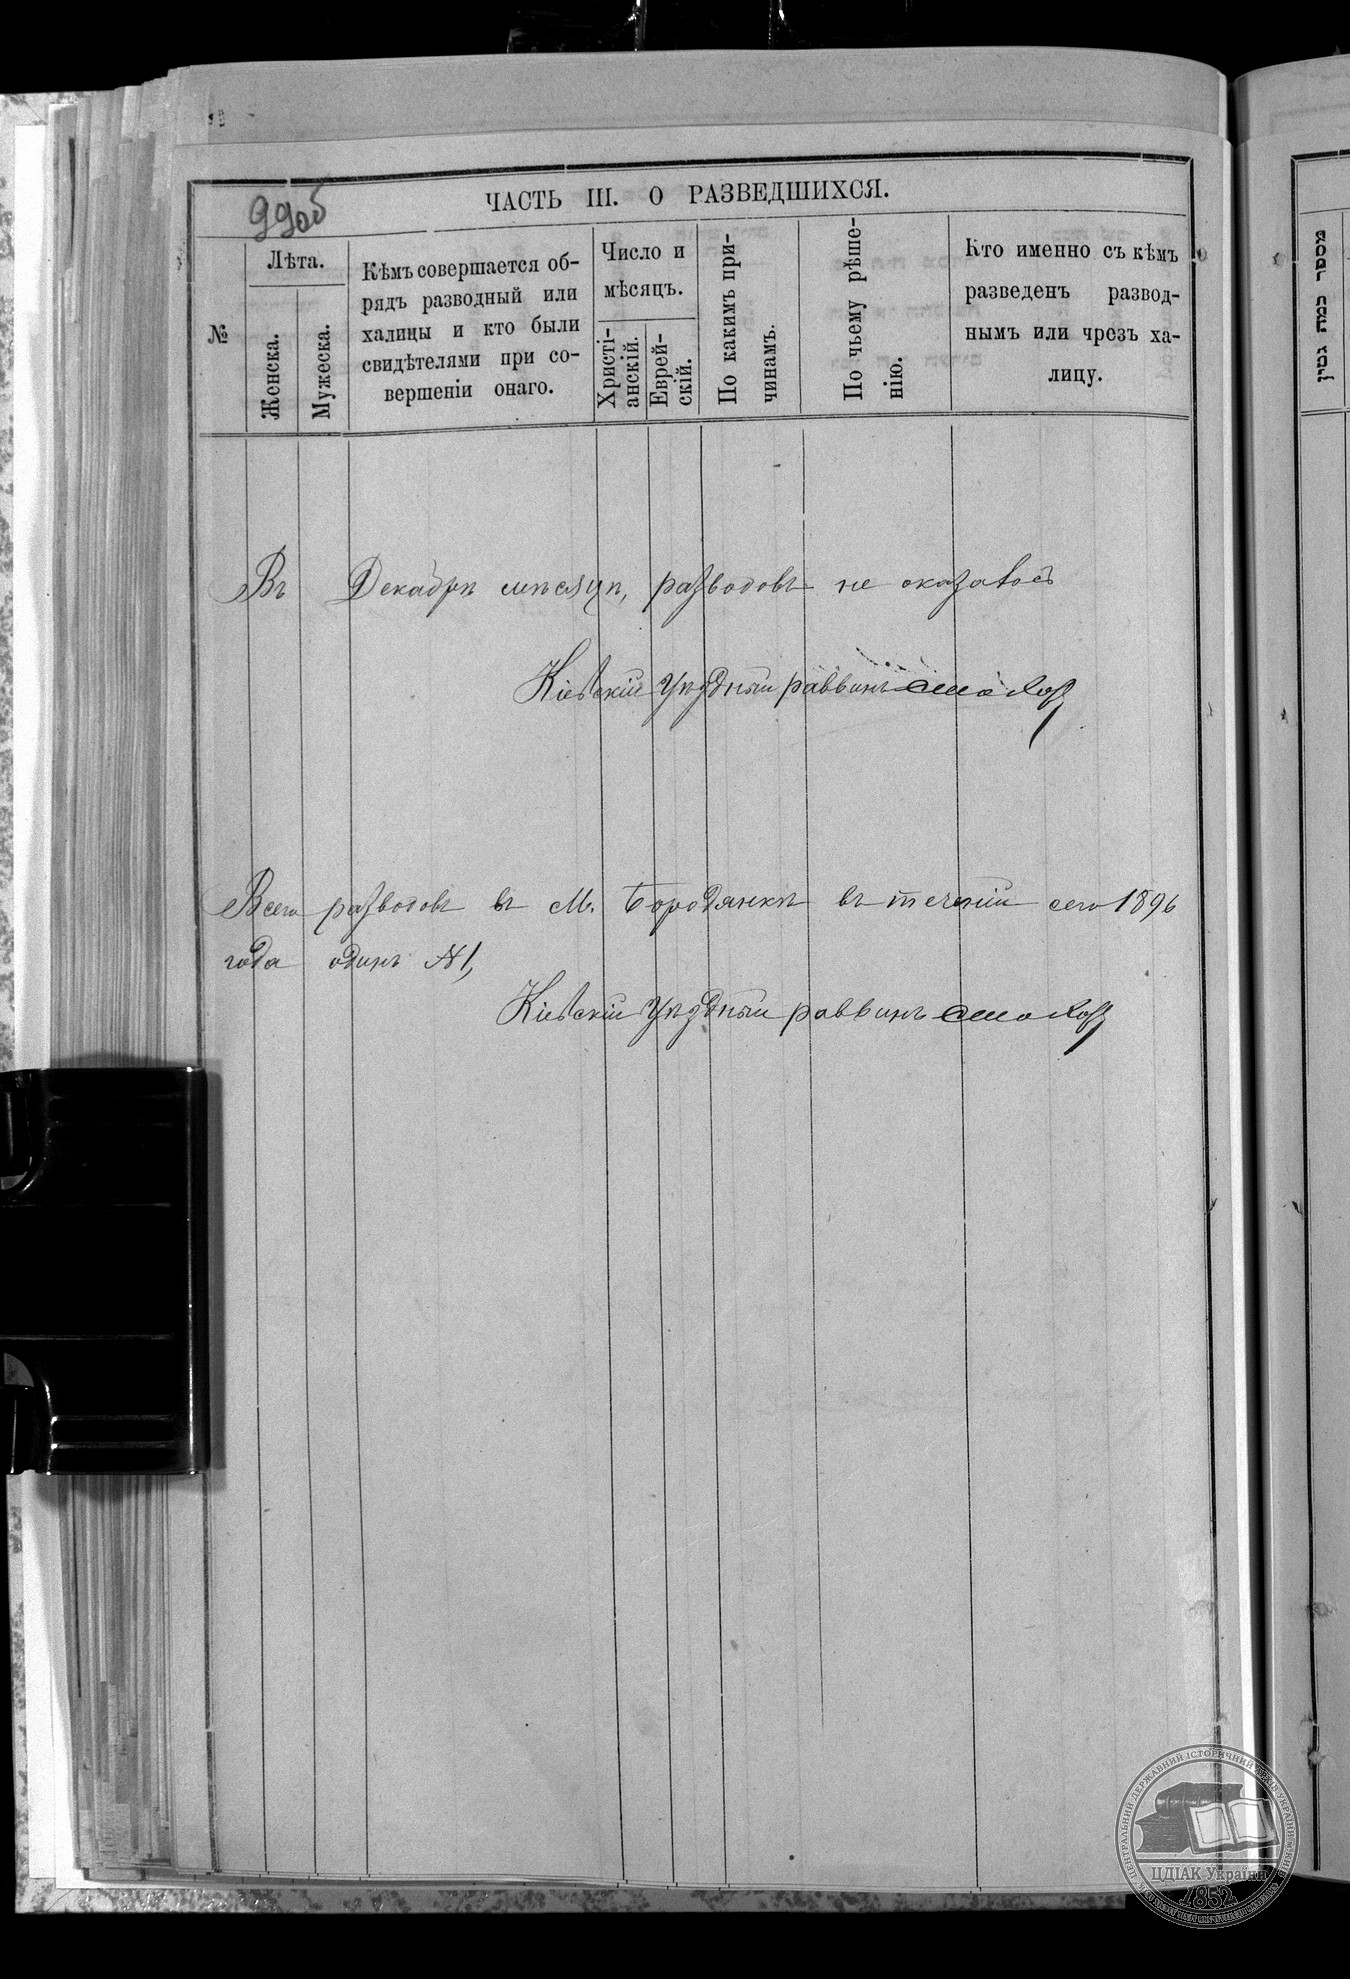 99об
ЧАСТЬ III. О РАЗВЕДШИХСЯ.
№
Лѣта.
Женска.
Мужеска.
Кѣмъ совершается об-
рядъ разводный или
халицы и кто были
свидѣтелями при со-
вершеніи онаго.
Число и
мѣсяцъ.
Христі-
анскій.
Еврей-
скій.
По какимъ при-
чинамъ.
По чьему рѣше-
нію.
Кто именно съ кѣмъ
разведенъ развод-
нымъ или чрезъ ха-
лицу.
מספר כמה גטין
Въ Декабрѣ мѣсяцѣ, разводовъ не оказалось
Кіевскій Уѣздный раввинъ
Всего разводовъ въ М. Бородянкѣ въ теченіи сего 1896
года одинъ №1,
Кіевскій Уѣздный раввинъ
ЦЕНТРАЛЬНИЙ ДЕРЖАВНИЙ ІСТОРИЧНИЙ АРХІВ УКРАЇНИ
ЦДІАК України
1852